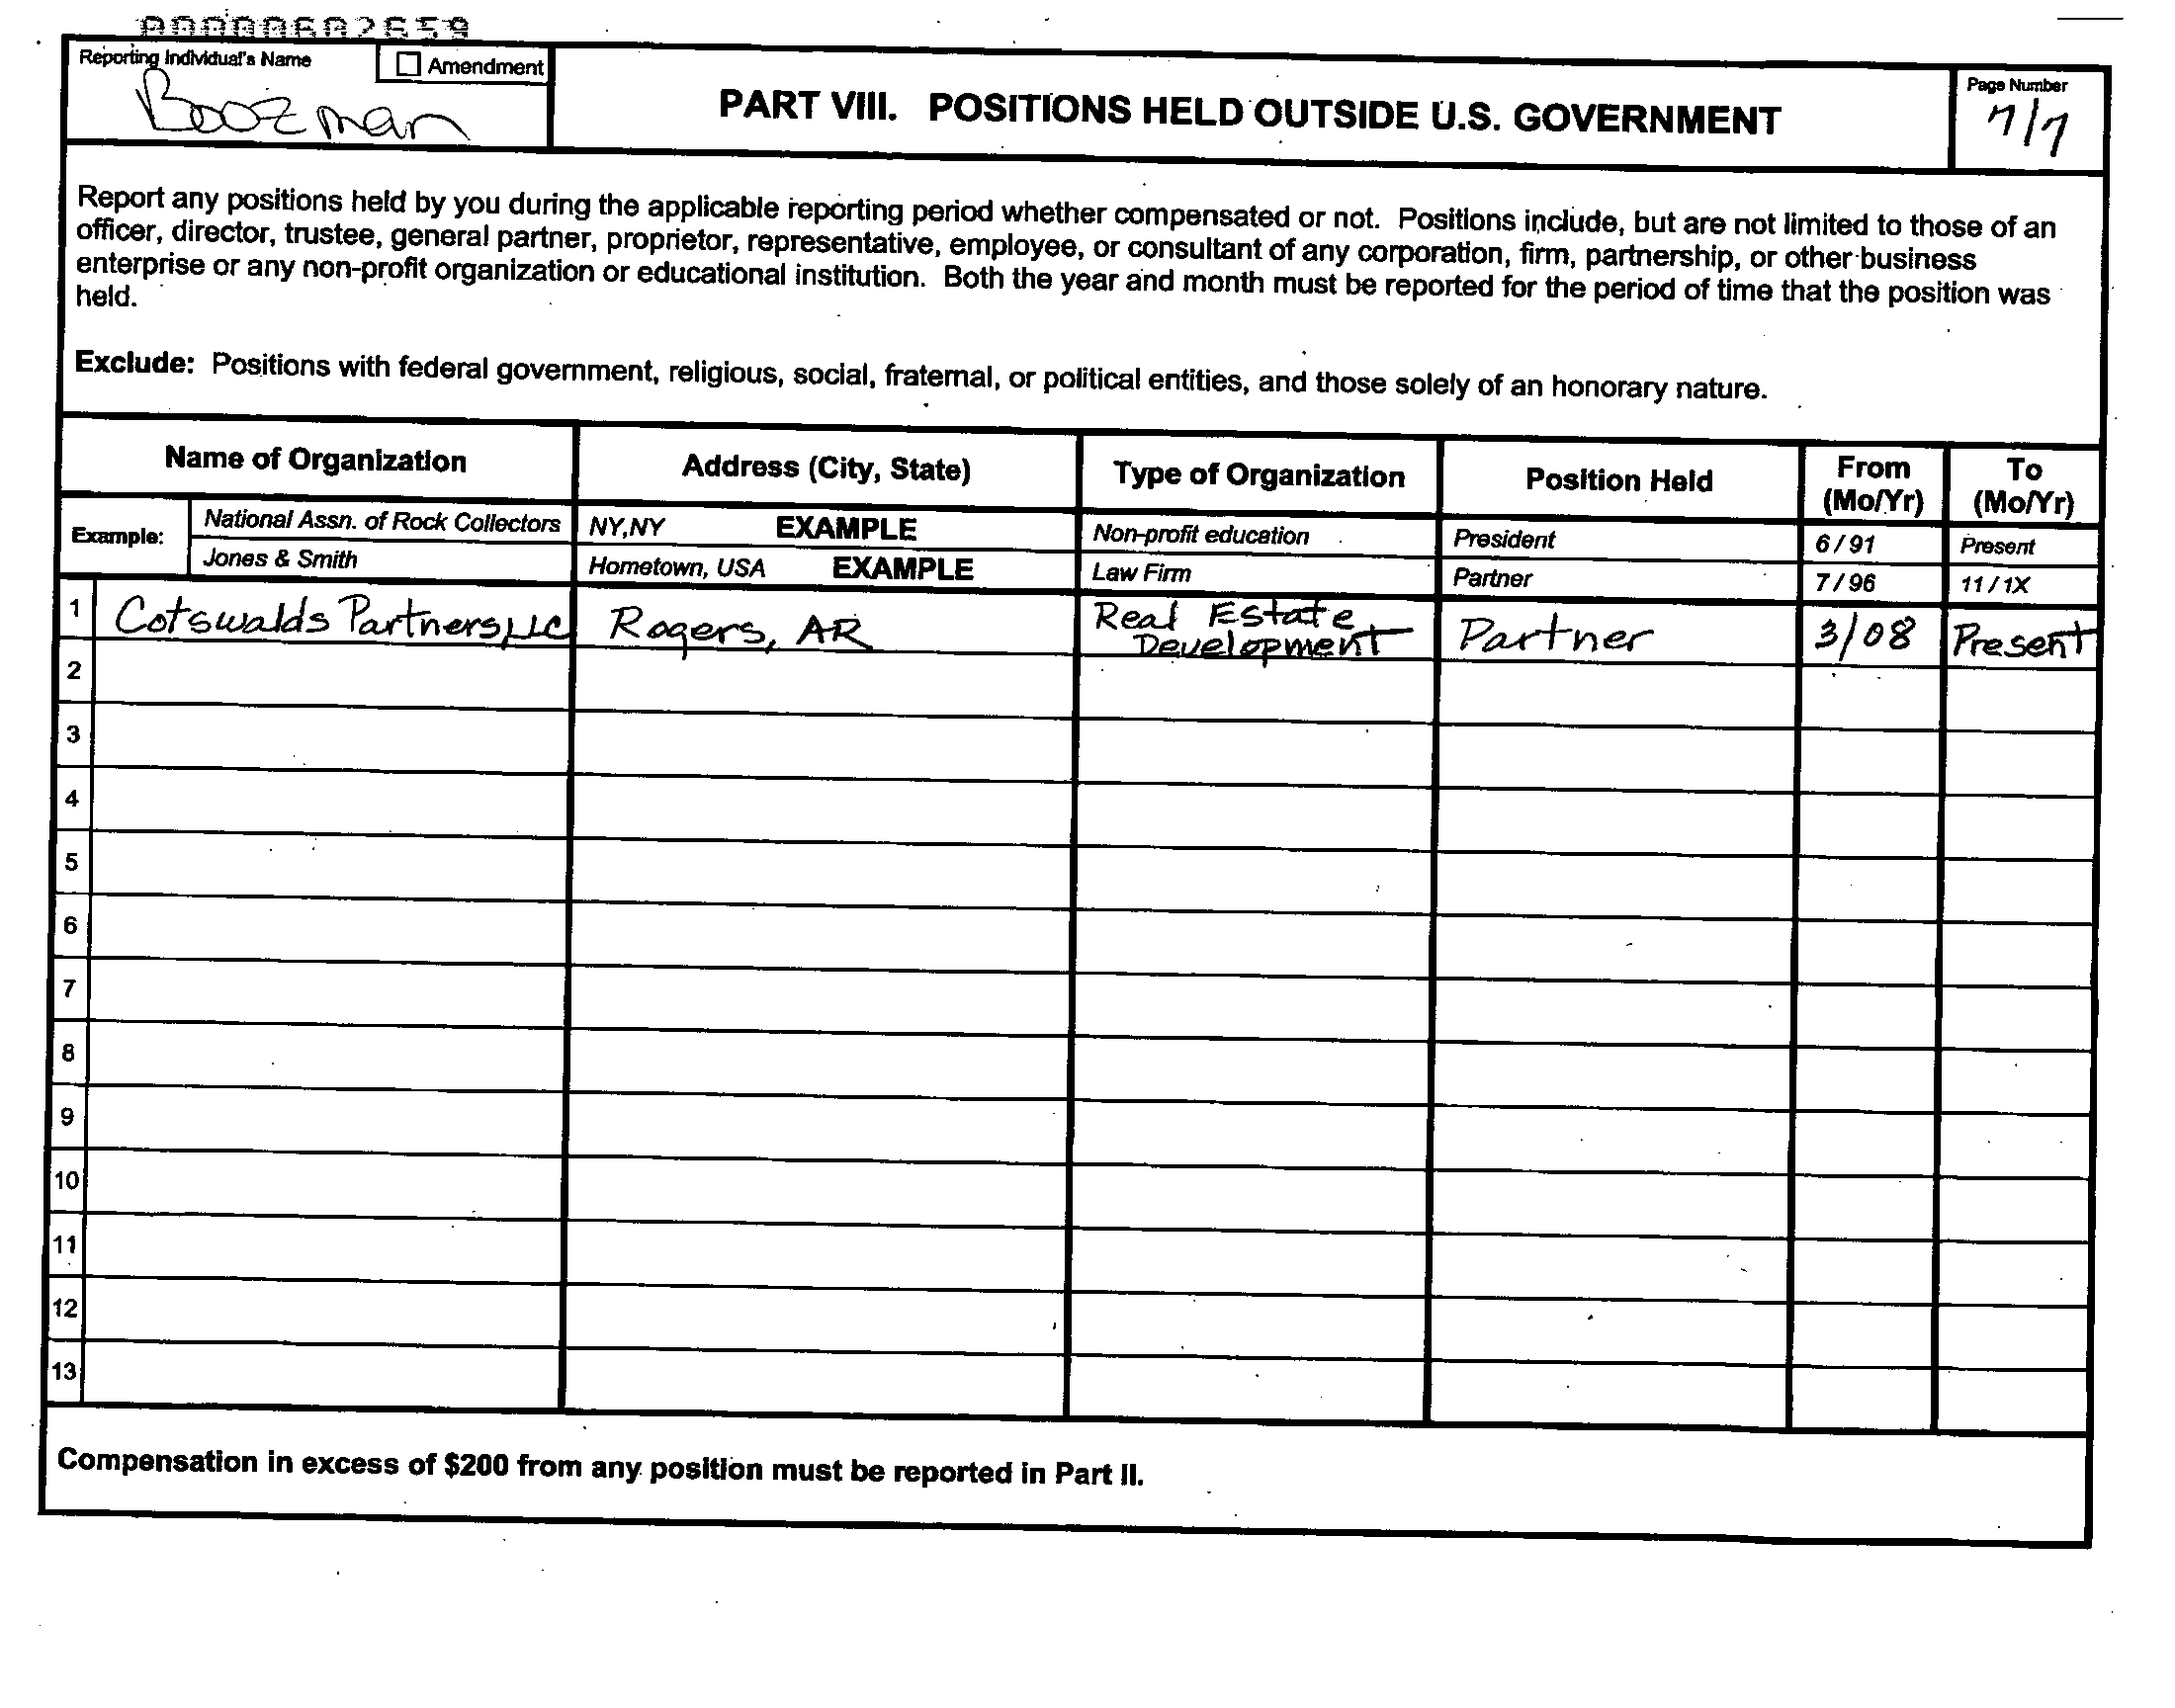 000000602659
Reporting Individual's Name
Amendment
Boozman
PART VIII. POSITIONS HELD OUTSIDE U.S. GOVERNMENT
Page Number
7/7
Report any positions held by you during the applicable reporting period whether compensated or not. Positions include, but are not limited to those of an
officer, director, trustee, general partner, proprietor, representative, employee, or consultant of any corporation, firm, partnership, or other business
enterprise or any non-profit organization or educational institution. Both the year and month must be reported for the period of time that the position was
held.
Exclude: Positions with federal government, religious, social, fraternal, or political entities, and those solely of an honorary nature.
Name of Organization Address (City, State) Type of Organization Position Held From (Mo/Yr) To (Mo/Yr)
Example: National Assn. of Rock Collectors NY,NY EXAMPLE Non-profit education President 6/91 Present
Jones & Smith Hometown, USA EXAMPLE Law Firm Partner 7/96 11/1X
1 Cotswalds Partners, LLC Rogers, AR Real Estate Development Partner 3/08 Present
2
3
4
5
6
7
8
9
10
11
12
13
Compensation in excess of $200 from any position must be reported in Part II.